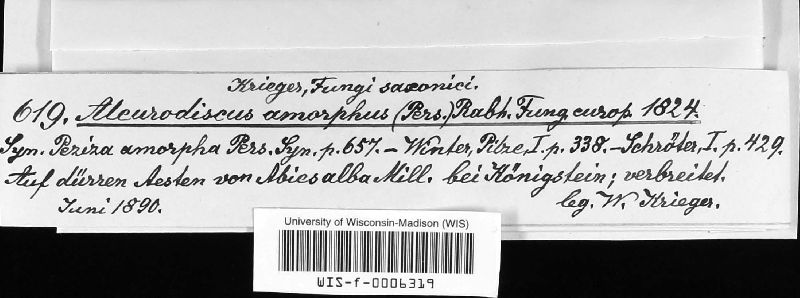 Krieger, Fungi saxonici.
619. Aleurodiscus amorphus (Pers.) Rabh. Fung. europ. 1824.
Syn. Peziza amorpha Pers. Syn. p. 657. – Winter, Pilze, I. p. 338. – Schröter, I. p. 429.
Auf dürren Aesten von Abies alba Mill. bei Königstein; verbreitet.
Juni 1890. leg. W. Krieger.
University of Wisconsin-Madison (WIS)
WIS-f-0006319